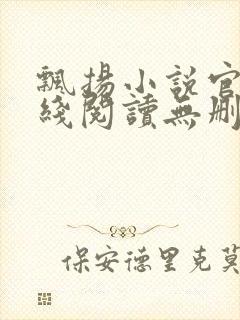 飄揚小説官
綫閱讀無刪
保安德里克莫